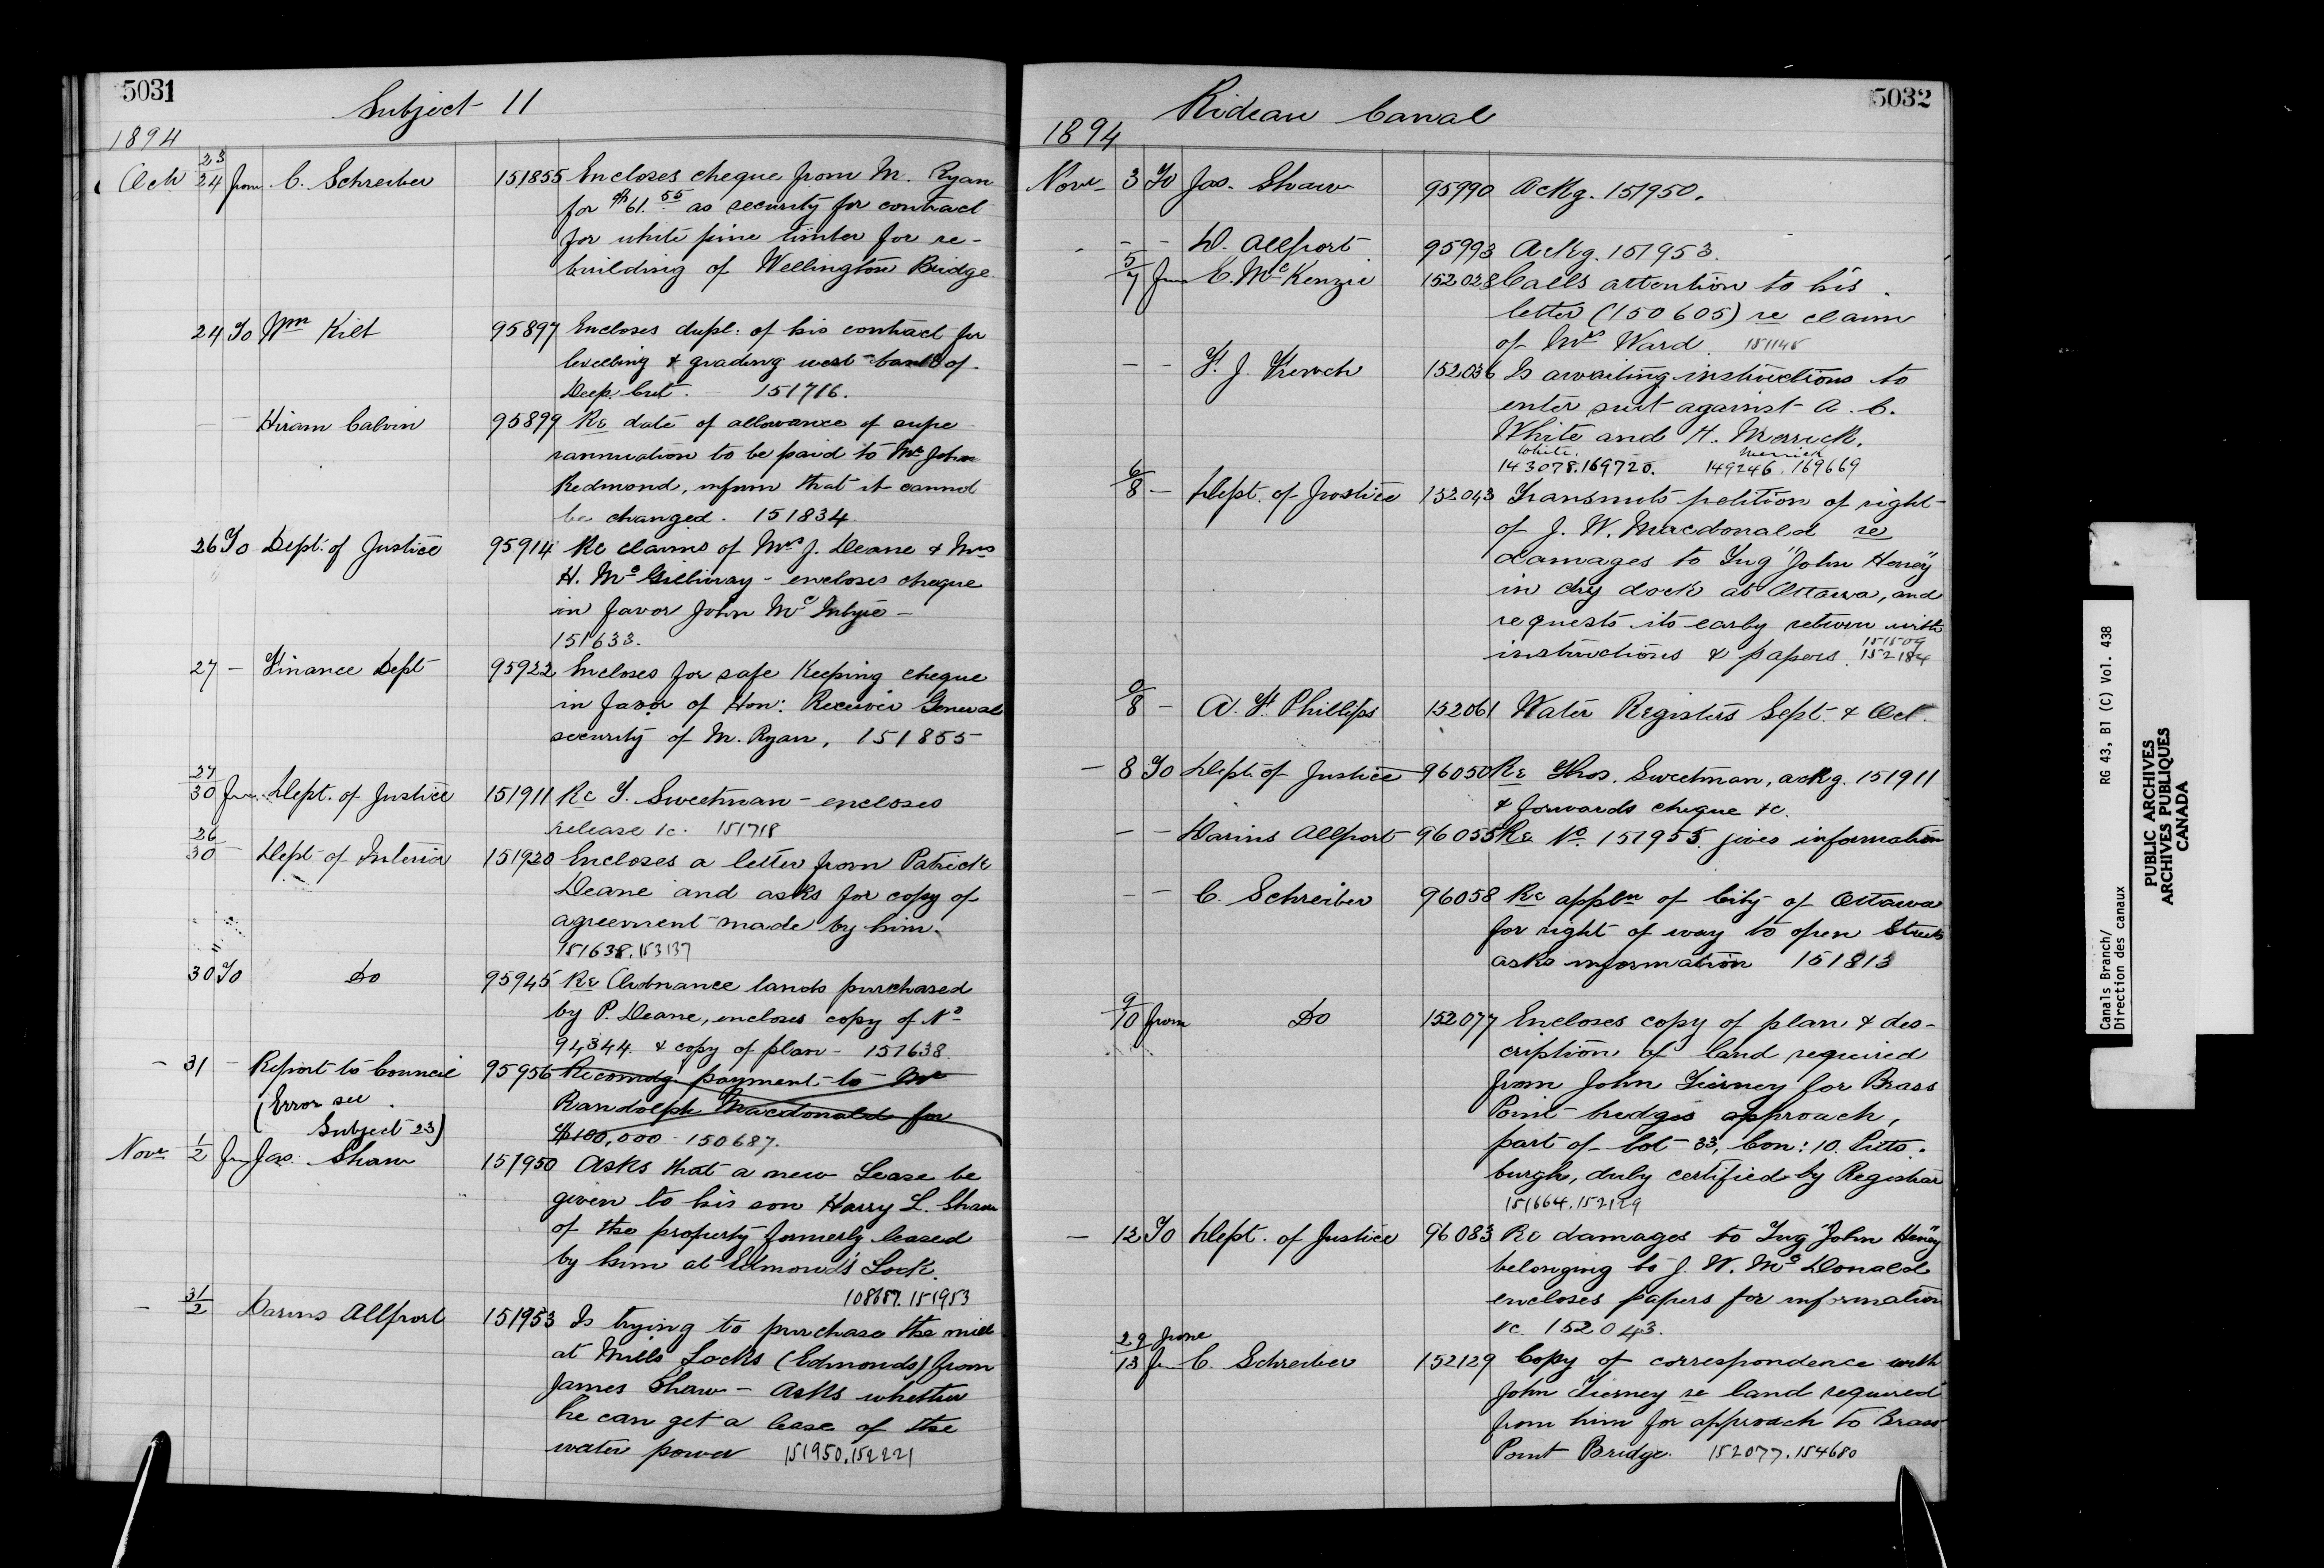 5031
Subject 11
1894
Oct 23/24 from C. Schreiber 151855 Encloses cheque from M. Ryan
for $61.55 as security for contract
for white pine timber for re-
building of Wellington Bridge
24 To Wm Kilt 95897 Encloses dupl: of his contract for
levelling & grading west bank of
Deep Cut. - 151716.
- Hiram Calvin 95899 Re date of allowance of supe
rannuation to be paid to Mr John
Redmond, inform that it cannot
be changed. 151834
26 To Dept. of Justice 95914 Re claims of Mrs J. Deane & Mrs
H. McGillivray - encloses cheque
in favor John McIntyre -
151633.
27 - Finance Dept 95922 Encloses for safe Keeping cheque
in favor of Hon: Receiver General
security of M. Ryan, 151855
27/30 from Dept. of Justice 151911 Re T. Sweetman - encloses
release &c. 151718
26/30 - Dept of Interior 151920 Encloses a letter from Patrick
Deane and asks for copy of
agreement made by him.
151638.153137
30 To Do 95945 Re Ordnance lands purchased
by P. Deane, encloses copy of No
94344. & copy of plan - 151638.
- 31 - Report to Council 95956 Recomdg payment to Mr
(Error see Randolph Macdonald for
Subject 23) $100,000 - 150687.
Nov 1/2 from Jas. Shaw 151950 Asks that a new Lease be
given to his son Harry L. Shaw
of the property formerly leased
by him at Edmond's Lock.
108687.151953
- 31/2 Darius Allport 151953 Is trying to purchase the mill
at Mills Locks (Edmonds) from
James Shaw - Asks whether
he can get a lease of the
water power 151950.152221
5032
Rideau Canal
1894
Nov 3 To Jas. Shaw 95990 Ackg. 151950.
- - D. Allport 95993 Ackg. 151953.
5/7 from C. McKenzie 152028 Calls attention to his
letter (150605) re claim
of Mrs Ward. 151145
- - F. J. French 152036 Is awaiting instructions to
enter suit against A. C.
White and H. Merrick.
White. Merrick
143078.169720. 149246.169669
6/8 - Dept. of Justice 152043 Transmits petition of right
of J. W. Macdonald re
damages to Tug "John Heney"
in dry dock at Ottawa, and
requests its early return with
151509
instructions & papers. 152184
8 - A. F. Phillips 152061 Water Registers Sept. & Oct.
- 8 To Dept. of Justice 96050 Re Thos. Sweetman, ackg. 151911
& forwards cheque &c.
- - Darius Allport 96055 Re No. 151955. gives information
- - C. Schreiber 96058 Re appln of City of Ottawa
for right of way to open Streets
asks information 151813
9/10 from Do 152077 Encloses copy of plan & des-
cription of land required
from John Tierney for Brass
Point bridges approach,
part of lot 33, Con: 10. Pitts.
burgh, duly certified by Registrar
151664.152129
- 12 To Dept. of Justice 96083 Re damages to Tug "John Heney"
belonging to J. W. McDonald
encloses papers for information
&c. 152043.
29 June/13 from C. Schreiber 152129 Copy of correspondence with
John Tierney re land required
from him for approach to Brass
Point Bridge. 152077.154680
Canals Branch/
Direction des canaux
RG 43, B1 (C) Vol. 438
PUBLIC ARCHIVES
ARCHIVES PUBLIQUES
CANADA